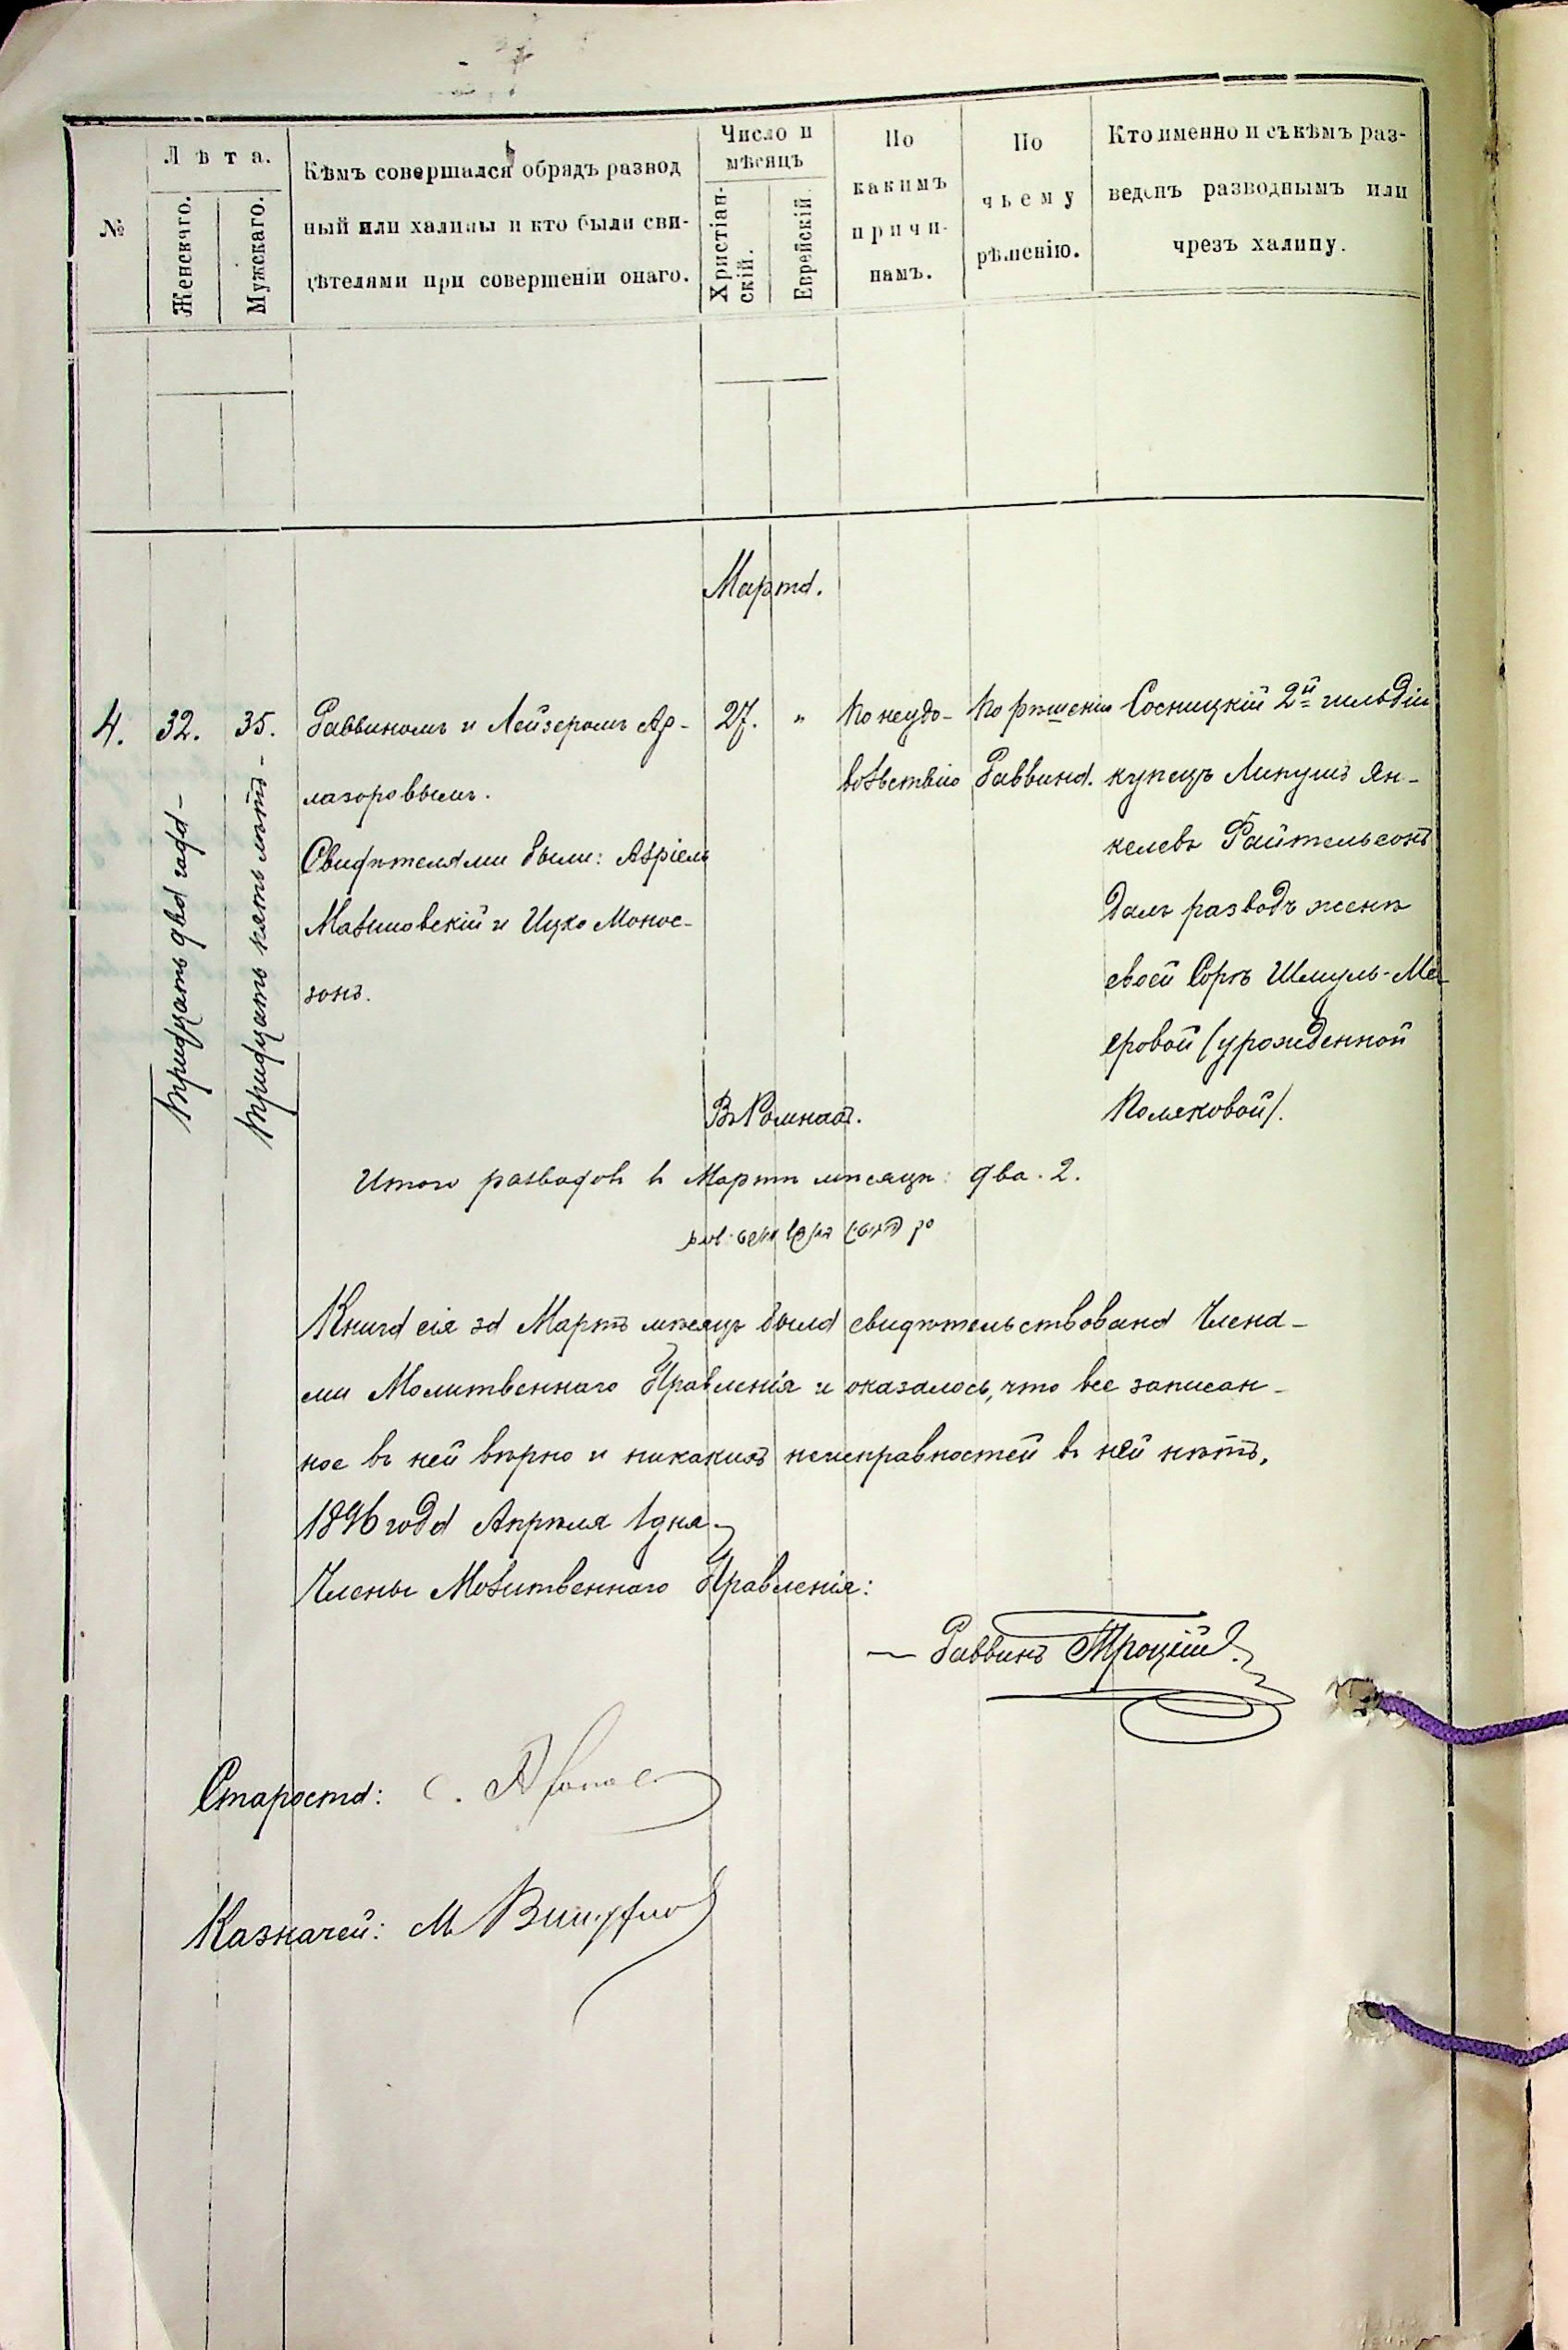 №
Лѣта.
Женскаго.
Мужскаго.
Кѣмъ совершался обрядъ развод
ный или халицы и кто были сви-
дѣтелями при совершеніи онаго.
Число и
мѣсяцъ
Христіан-
скій.
Еврейскій.
По
какимъ
причи-
намъ.
По
чьему
рѣшенію.
Кто именно и съ кѣмъ раз-
веденъ разводнымъ или
чрезъ халицу.
Марта.
4.
32.
Тридцать два года
35.
Тридцать пять лѣтъ
Раввиномъ и Лейзеромъ Ар-
лазоровымъ.
Свидѣтелями были: Азріель
Малиновскій и Ицко Монос-
зонъ.
27.
"
По неудо-
вольствію
По рѣшенію
Раввина.
Сосницкій 2й гильдіи
купецъ Липушъ Ян-
келевъ Райтельсонъ
далъ разводъ женѣ
своей Сорѣ Шмуль-Ме-
еровой (урожденной
Поляковой).
Въ Ромнахъ.
Итого разводовъ въ Мартѣ мѣсяцѣ: два. 2.
Книга сія за Мартъ мѣсяцъ была свидѣтельствована Члена-
ми Молитвеннаго Правленія и оказалось, что все записан-
ное въ ней вѣрно и никакихъ неисправностей въ ней нѣтъ,
1896 года Апрѣля 1 дня
Члены Молитвеннаго Правленія:
Раввинъ Троцкій
Староста: С.
Казначей: М